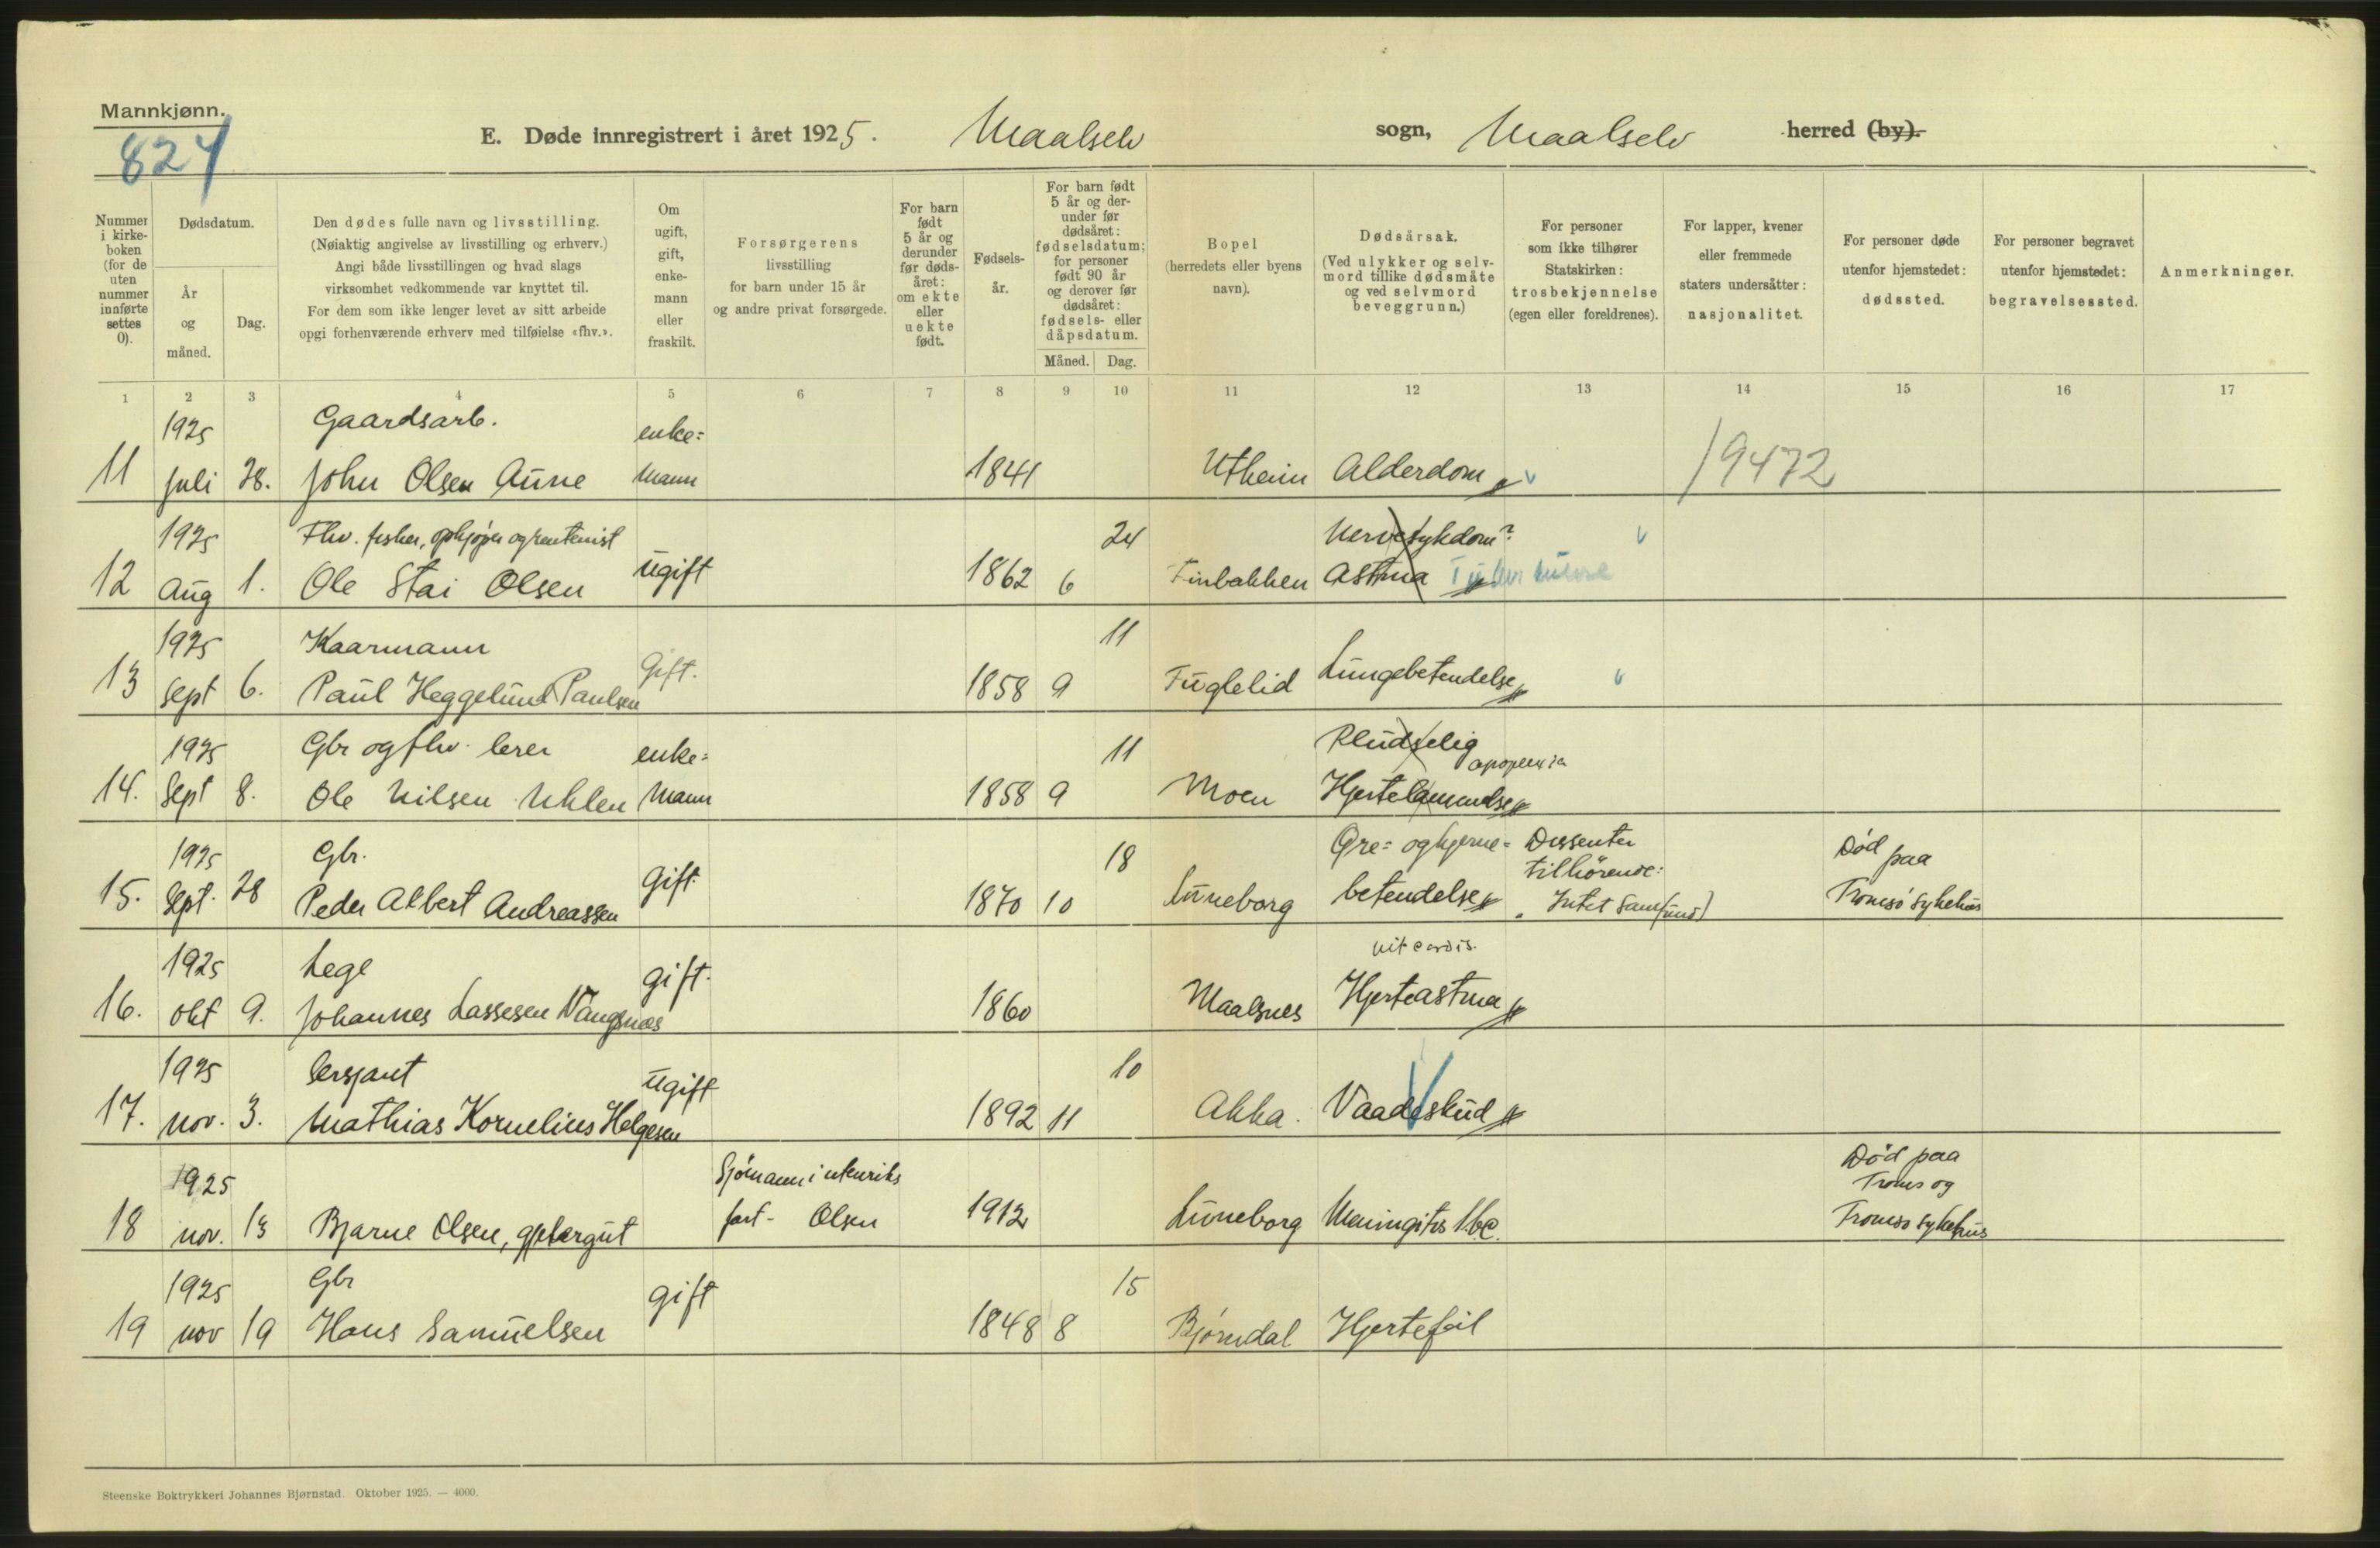 Mannkjønn.
824
E. Døde innregistrert i året 1925. Maalselv sogn, Maalselv herred (by).
Nummer i kirkeboken (for de uten nummer innførte settes 0).
Dødsdatum.
År og måned.
Dag.
Den dødes fulle navn og livsstilling.
(Nøiaktig angivelse av livsstilling og erhverv.)
Angi både livsstillingen og hvad slags
virksomhet vedkommende var knyttet til.
For dem som ikke lenger levet av sitt arbeide
opgi forhenværende erhverv med tilføielse «fhv.».
Om ugift, gift, enkemann eller fraskilt.
Forsørgerens
livsstilling
for barn under 15 år
og andre privat forsørgede.
For barn født 5 år og derunder før dødsåret: om ekte eller uekte født.
Fødselsår.
For barn født 5 år og derunder før dødsåret: fødselsdatum; for personer født 90 år og derover før dødsåret: fødsels- eller dåpsdatum.
Måned. Dag.
Bopel
(herredets eller byens
navn).
Dødsårsak.
(Ved ulykker og selvmord tillike dødsmåte
og ved selvmord
beveggrunn.)
For personer
som ikke tilhører
Statskirken:
trosbekjennelse
(egen eller foreldrenes).
For lapper, kvener
eller fremmede
staters undersåtter:
nasjonalitet.
For personer døde
utenfor hjemstedet:
dødssted.
For personer begravet
utenfor hjemstedet:
begravelsessted.
Anmerkninger.
1 2 3 4 5 6 7 8 9 10 11 12 13 14 15 16 17
1925 Gaardsarb. enke=
11 juli 28. John Olsen Aune mann 1841 Utheim Alderdom 19472
1925 Fhv. fisker, opkjøper og rentenist 24 Nervesykdom?
12 Aug 1. Ole Stai Olsen ugift 1862 6 Finbakken Astma Tuberkulose
1925 Kaarmann 11
13 Sept 6. Paul Heggelund Paulsen Gift. 1858 9 Fuglelid Lungebetendelse
1925 Gbr og fhv. lerer enke= 11 Pludselig apoplexia
14. Sept 8. Ole Nilsen Uhlen Mann 1858 9 Moen Hjertelammelse
1925 Gbr. 18 Øre= og hjerne= Dissenter tilhørende: Død paa
15. Sept. 28 Peder Albert Andreassen Gift. 1870 10 Luneborg betendelse Intet samfund Tromsø sykehus
1925 Lege vit cordis.
16. okt 9. Johannes Lassesen Vangsnes gift. 1860 Maalsnes Hjerteastma
1925 Sersjant 10
17. nov. 3. Mathias Kornelius Helgesen ugift 1892 11 Akka. Vaadeskud
1925 Sjømann i utenriks Død paa Troms og
18 nov. 13 Bjarne Olsen, gjetergut fart - Olsen 1912 Luneborg Meningitis tbc. Tromsø sykehus
1925 Gbr 15
19 nov 19 Hans Samuelsen gift 1848 8 Bjørndal Hjertefeil
Steenske Boktrykkeri Johannes Bjørnstad. Oktober 1925. — 4000.